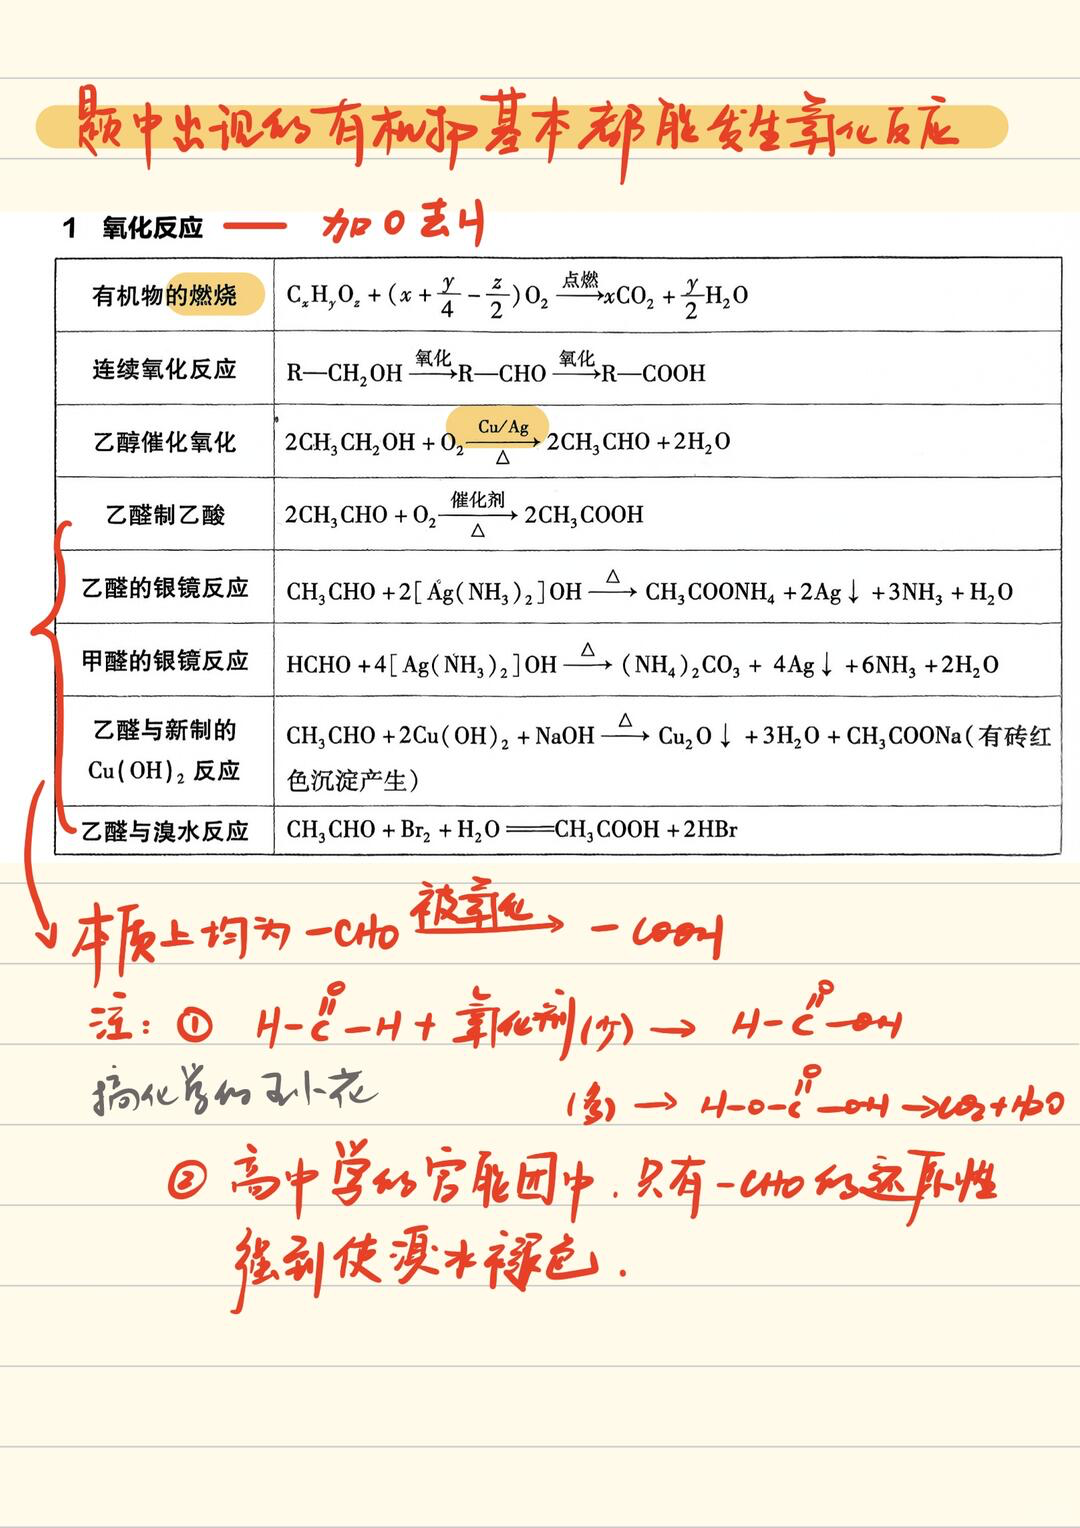 题中出现的有机物基本都能发生氧化反应
1 氧化反应 —— 加O去H
有机物的燃烧 CxHyOz + (x + y/4 - z/2)O₂ —点燃→ xCO₂ + y/2 H₂O
连续氧化反应 R—CH₂OH —氧化→ R—CHO —氧化→ R—COOH
乙醇催化氧化 2CH₃CH₂OH + O₂ —Cu/Ag △→ 2CH₃CHO + 2H₂O
乙醛制乙酸 2CH₃CHO + O₂ —催化剂 △→ 2CH₃COOH
乙醛的银镜反应 CH₃CHO + 2[Ag(NH₃)₂]OH —△→ CH₃COONH₄ + 2Ag↓ + 3NH₃ + H₂O
甲醛的银镜反应 HCHO + 4[Ag(NH₃)₂]OH —△→ (NH₄)₂CO₃ + 4Ag↓ + 6NH₃ + 2H₂O
乙醛与新制的
Cu(OH)₂ 反应
CH₃CHO + 2Cu(OH)₂ + NaOH —△→ Cu₂O↓ + 3H₂O + CH₃COONa(有砖红
色沉淀产生)
乙醛与溴水反应 CH₃CHO + Br₂ + H₂O ══ CH₃COOH + 2HBr
本质上均为 -CHO —被氧化→ -COOH
注: ① H-C(=O)-H + 氧化剂(少) → H-C(=O)-OH
搞化学的王小花
(多) → H-O-C(=O)-OH → CO₂+H₂O
② 高中学的官能团中,只有-CHO的还原性
强到使溴水褪色.